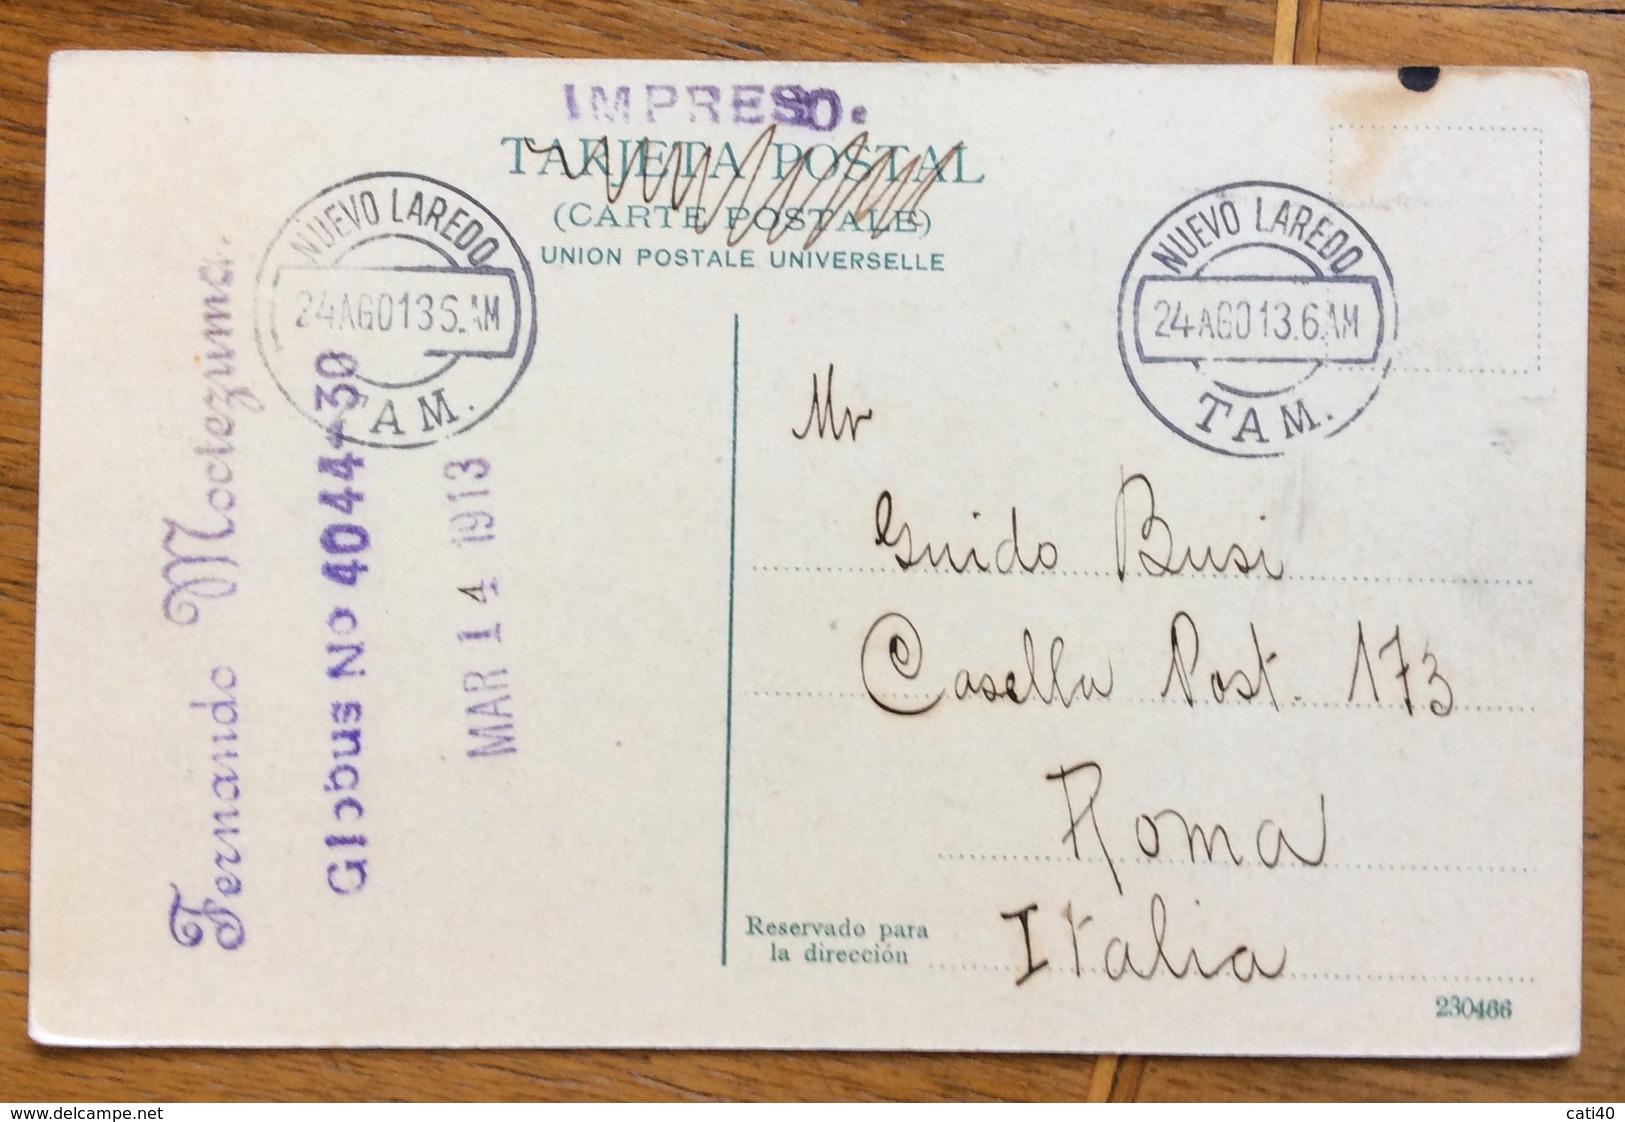 IMPRESO.
TARJETA POSTAL
(CARTE POSTALE)
UNION POSTALE UNIVERSELLE
NUEVO LAREDO
24 AGO 13 6 AM
TAM.
NUEVO LAREDO
24 AGO 13. 6 AM
TAM.
Fernando Moctezuma.
Globus No 4044-30
MAR 14 1913
Mr
Guido Busi
Casella Post. 173
Roma
Italia
Reservado para
la dirección
230466
www.delcampe.net
cati40